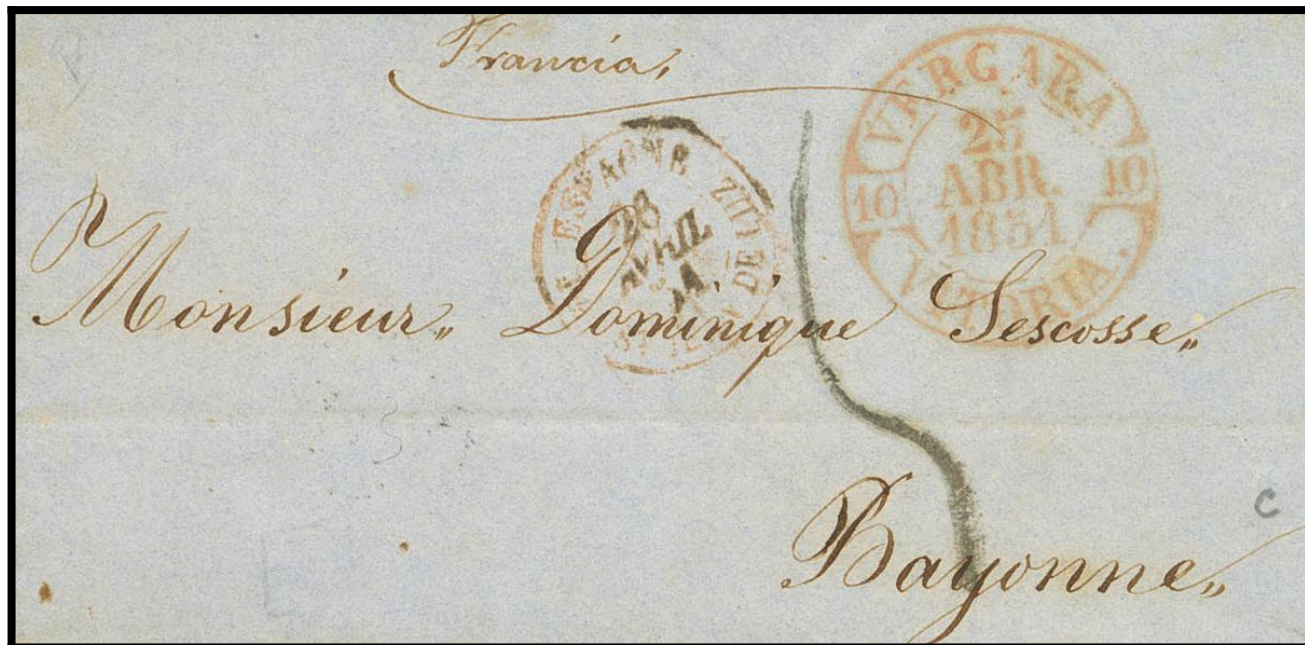 Francia,
VERGARA
10 25 10
ABR.
1851
VITORIA.
ESPAGNE
26
AVRIL
DE LUZ
Monsieur„ Dominique Lescosse„
Bayonne„
C